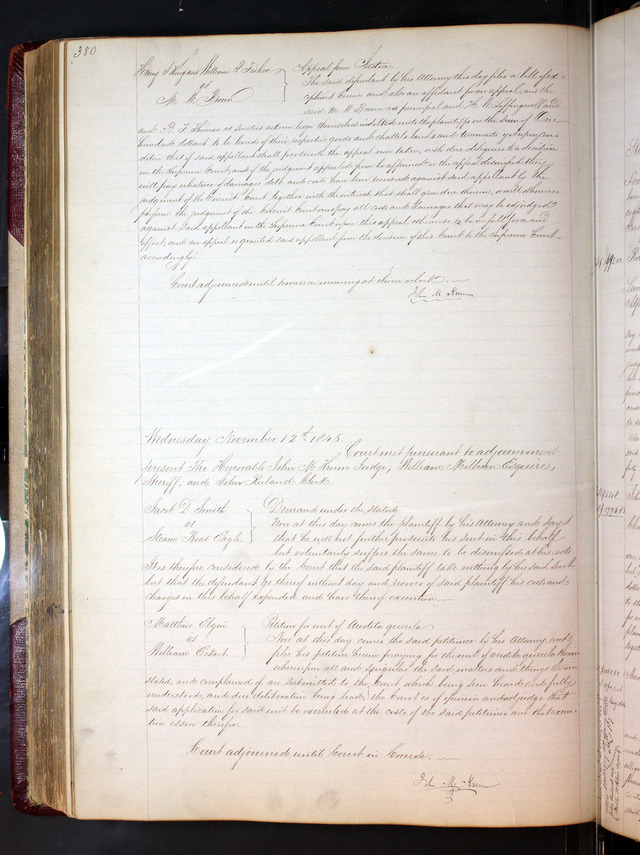 380
Henry S King and William P Fisher } Appeal from Justice
vs The said defendant by his Attorney this day files a bill of ex-
W. W. Brown ceptions herein and also an affidavit for an appeal, and the
said W. W. Brown as principal and H. W. Leffingwell and
and R. F. Thomas as sureties acknowledge themselves indebted unto the plaintiffs in the sum of One
hundred dollars to be levied of their respective goods and chattels lands and tenements yet upon con-
dition that if said appellant shall prosecute his appeal now taken, with due diligence to a decision
in the Supreme Court, and if the judgment appealed from be affirmed or the appeal dismissed they
will pay whatever of damages debt and costs have been recovered against said appellant by the
judgment of the Circuit Court together with the interest that shall grow due thereon, and will otherwise
perform the judgment of the Circuit Court and pay all costs and damages that may be adjudged
against said appellant in the Supreme Court upon this appeal otherwise to be in full force and
effect, and an appeal is granted said appellant from the decision of this Court to the Supreme Court
accordingly.
Court adjourned until tomorrow morning at eleven o'clock.
John M Krum
Wednesday November 12th 1845.
Court met pursuant to adjournment
present The Honorable John M Krum Judge, William Milburn Esquire,
Sheriff; and John Ruland Clerk.
Jacob D Smith } Demand under the statute
vs Now at this day comes the plaintiff by his Attorney and says
Steam Boat Eagle that he will not further prosecute his suit in this behalf
but voluntarily suffers the same to be dismissed at his costs
It is therefore considered by the Court that the said plaintiff take nothing by his said suit
but that the defendant go thereof without day and recover of said plaintiff his costs and
charges in this behalf expended and have thereof execution.
Matthew Elgin } Petition for writ of Audita querela
vs Now at this day comes the said petitioner by his Attorney and
William Eckert files his petition herein praying for the writ of audita querela herein
whereupon all and singular the said matters and things therein
stated, and complained of are submitted to the Court which being seen heard and fully
understood, and due deliberation being had, the Court is of opinion and adjudge that
said application for said writ be overruled at the costs of the said petitioner and that execu-
tion issue therefor.
Court adjourned until Court in Course.
John M. Krum